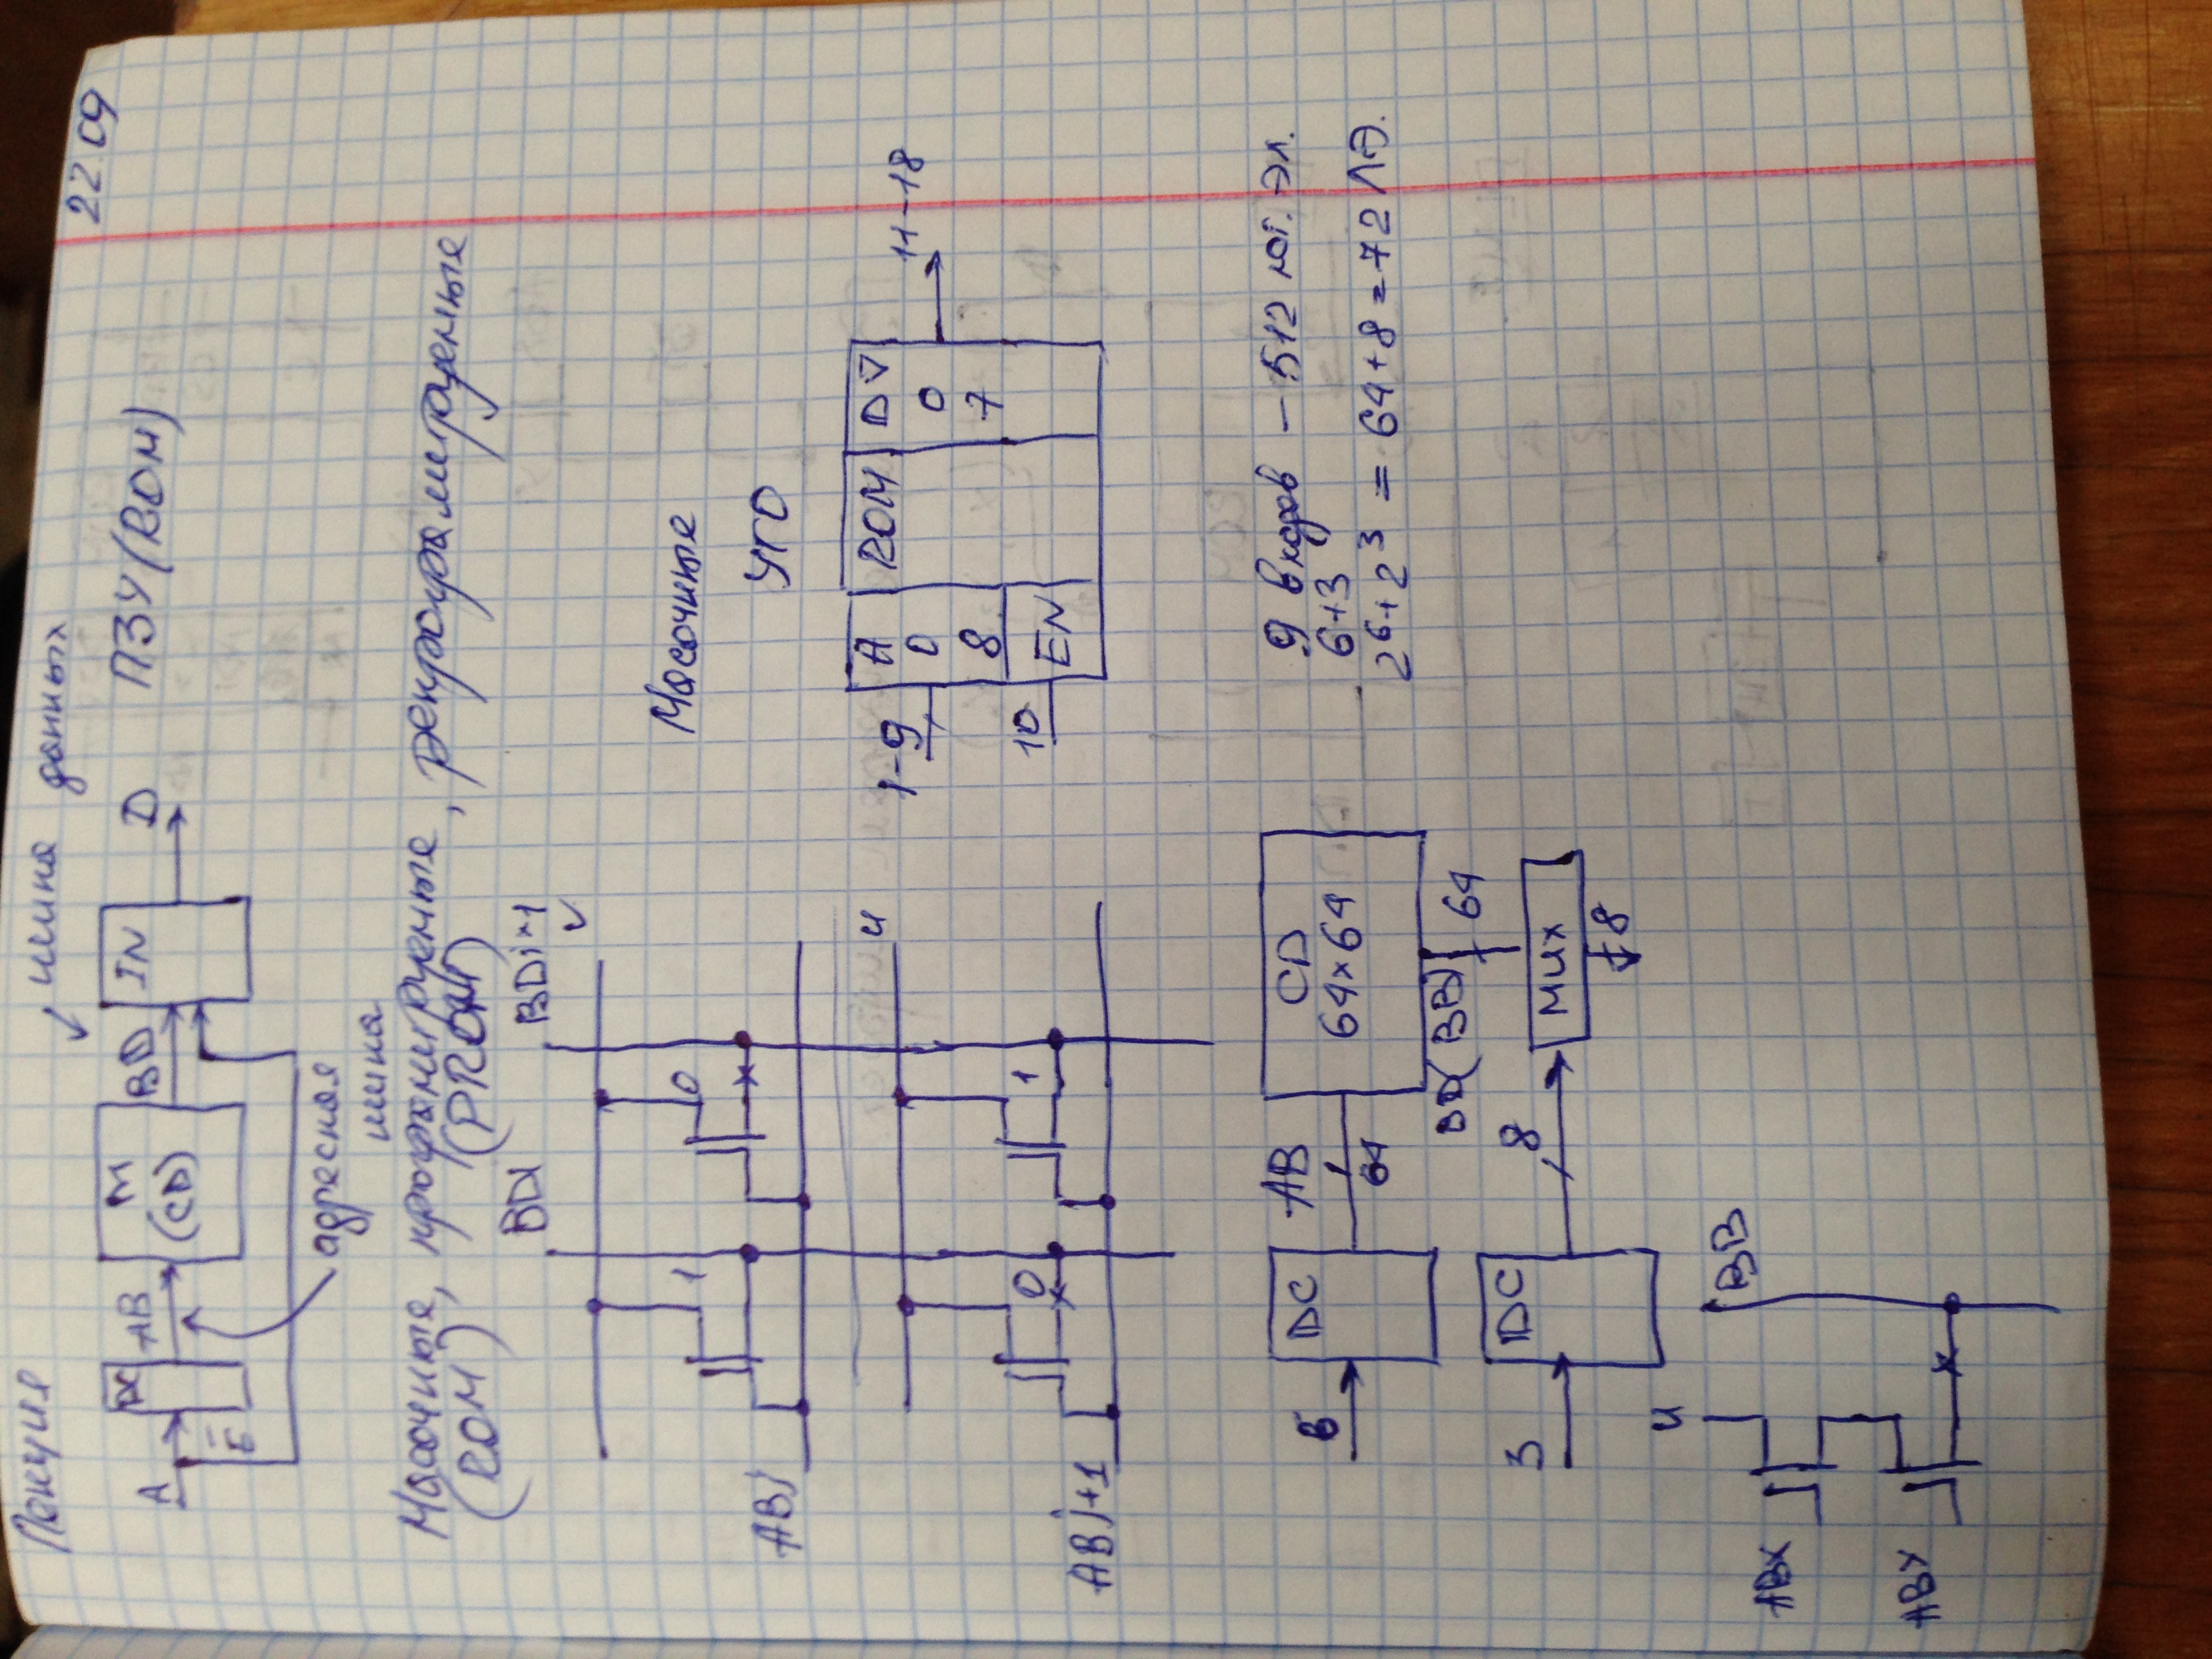 Лекция
22.09
шина данных
A DC AB M BD IN D ПЗУ (ROM)
(CD)
E
адресная
шина
Масочные, програмируемые, репрограмируемые
(ROM) (PROM)
BDi BDi+1
1 0
ABj
u
0 1
ABj+1
Масочные
УГО
A ROM D▽
1-9 0 0 11-18
8 7
10 EN
6 DC AB CD
64 64x64
BD(BB) 64
3 DC 8 MUX
8
9 входов – 512 эл.
6+3
2⁶+2³ = 64+8=72 ЛЭ.
u
BB
ABX
ABY